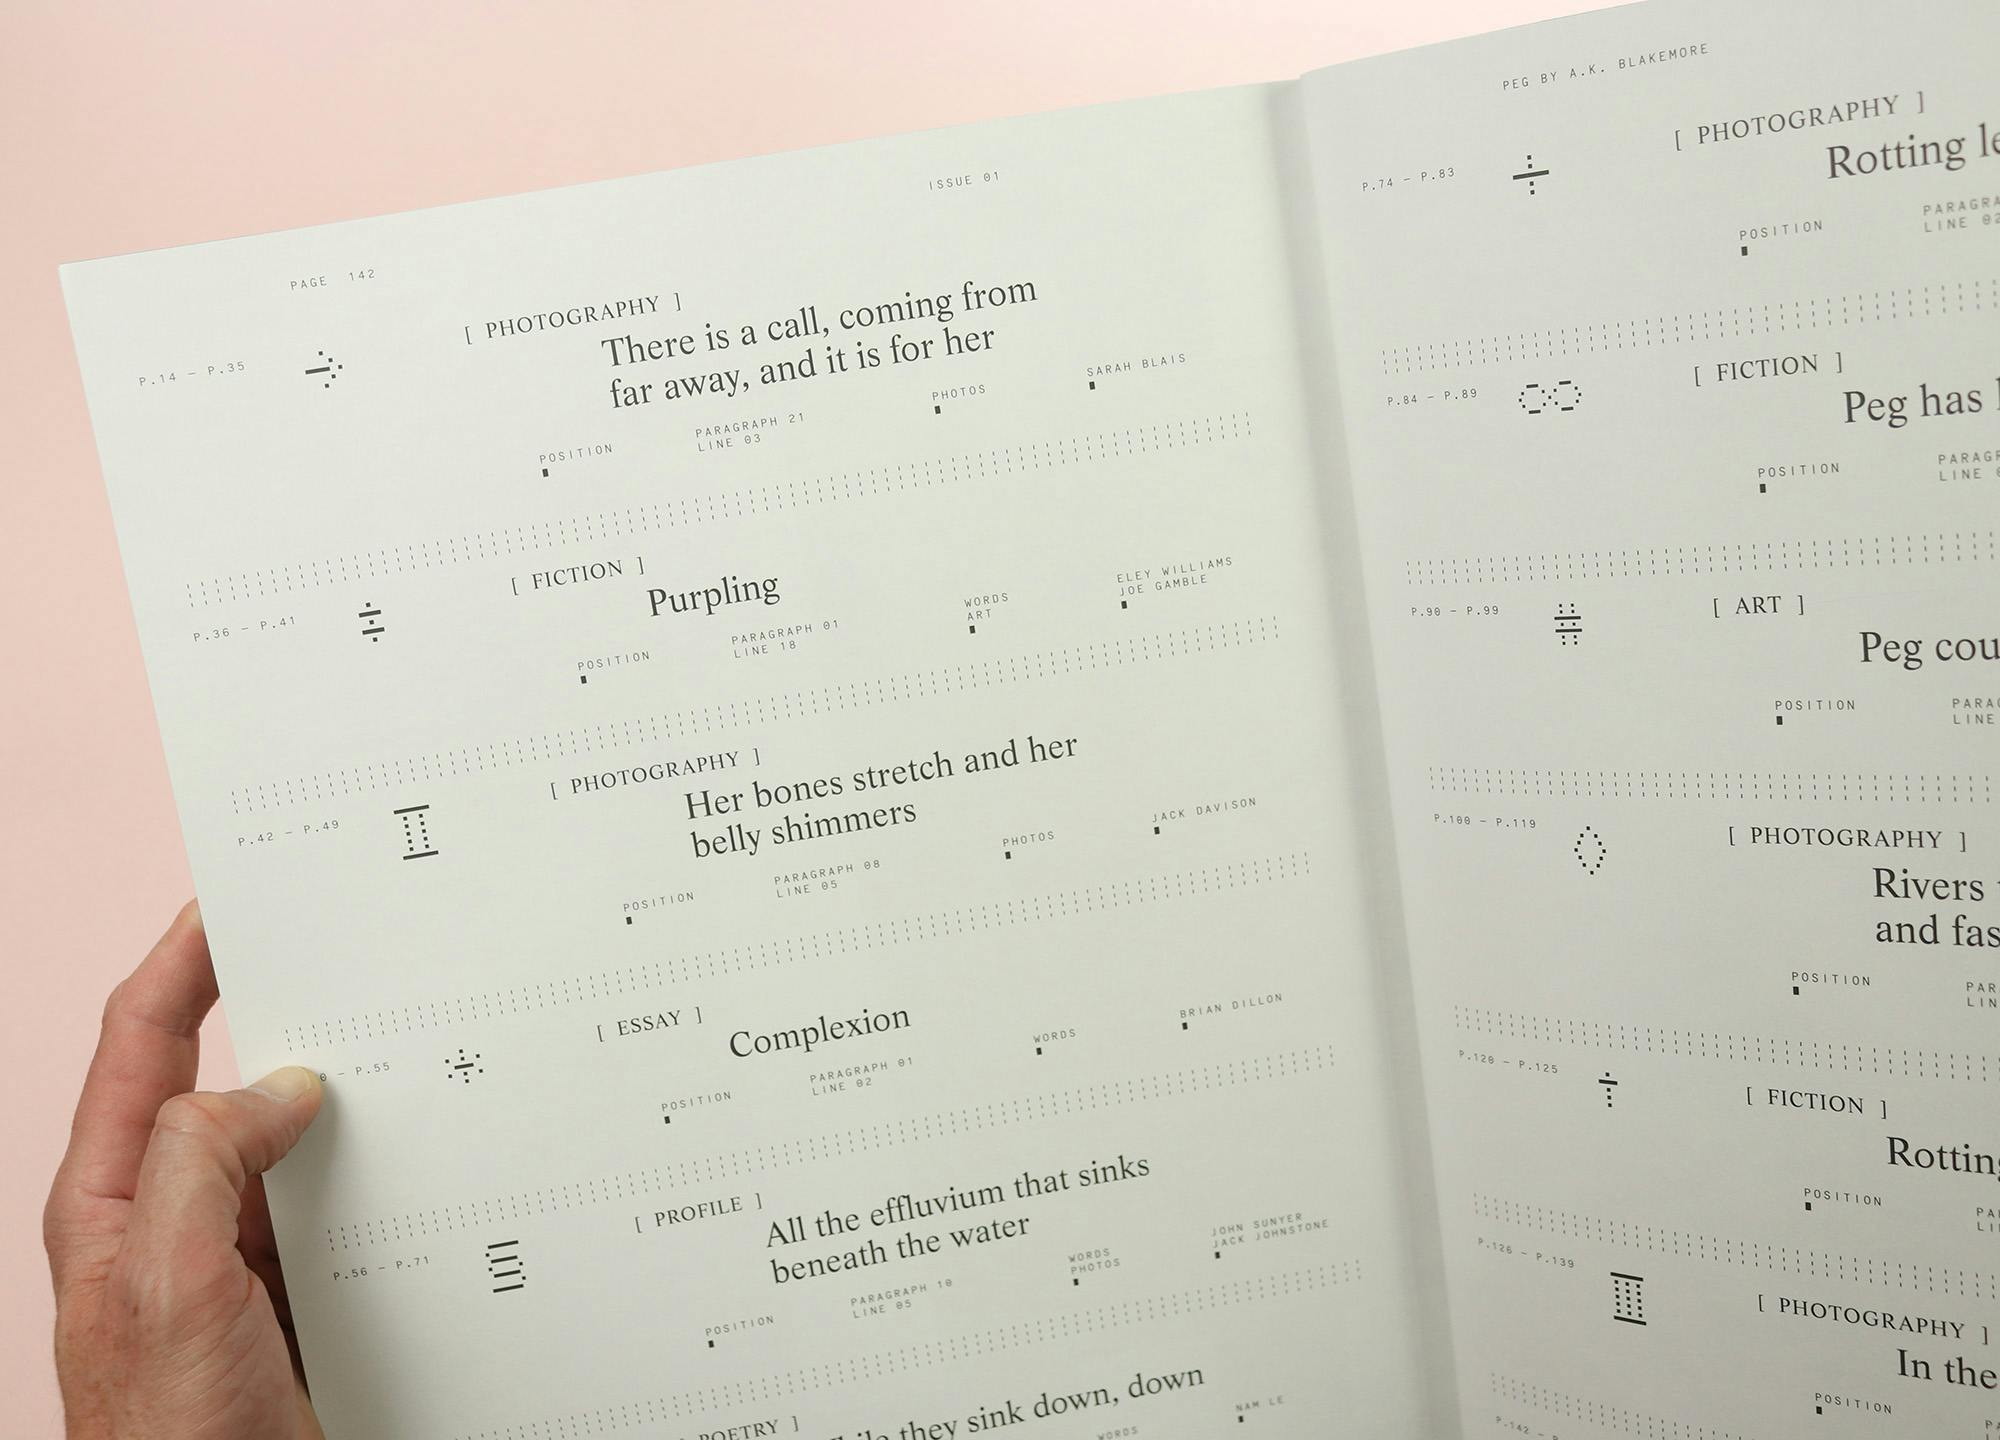 ISSUE 01
PAGE 142
P.14 – P.35
[ PHOTOGRAPHY ]
There is a call, coming from
far away, and it is for her
POSITION
PARAGRAPH 21
LINE 03
PHOTOS
SARAH BLAIS
P.36 – P.41
[ FICTION ]
Purpling
POSITION
PARAGRAPH 01
LINE 18
WORDS
ART
ELEY WILLIAMS
JOE GAMBLE
P.42 – P.49
[ PHOTOGRAPHY ]
Her bones stretch and her
belly shimmers
POSITION
PARAGRAPH 08
LINE 05
PHOTOS
JACK DAVISON
0 – P.55
[ ESSAY ]
Complexion
POSITION
PARAGRAPH 01
LINE 02
WORDS
BRIAN DILLON
P.56 – P.71
[ PROFILE ]
All the effluvium that sinks
beneath the water
POSITION
PARAGRAPH 10
LINE 05
WORDS
PHOTOS
JOHN SUNYER
JACK JOHNSTONE
POETRY ]
they sink down, down
WORDS
NAM LE
PEG BY A.K. BLAKEMORE
P.74 – P.83
[ PHOTOGRAPHY ]
Rotting
POSITION
LINE
P.84 – P.89
[ FICTION ]
Peg has
POSITION
LINE
P.90 – P.99
[ ART ]
Peg
POSITION
LINE
P.100 – P.119
[ PHOTOGRAPHY ]
Rivers
and
POSITION
P.120 – P.125
[ FICTION ]
POSITION
P.126 – P.139
[ PHOTOGRAPHY ]
In the
POSITION
P.142 –